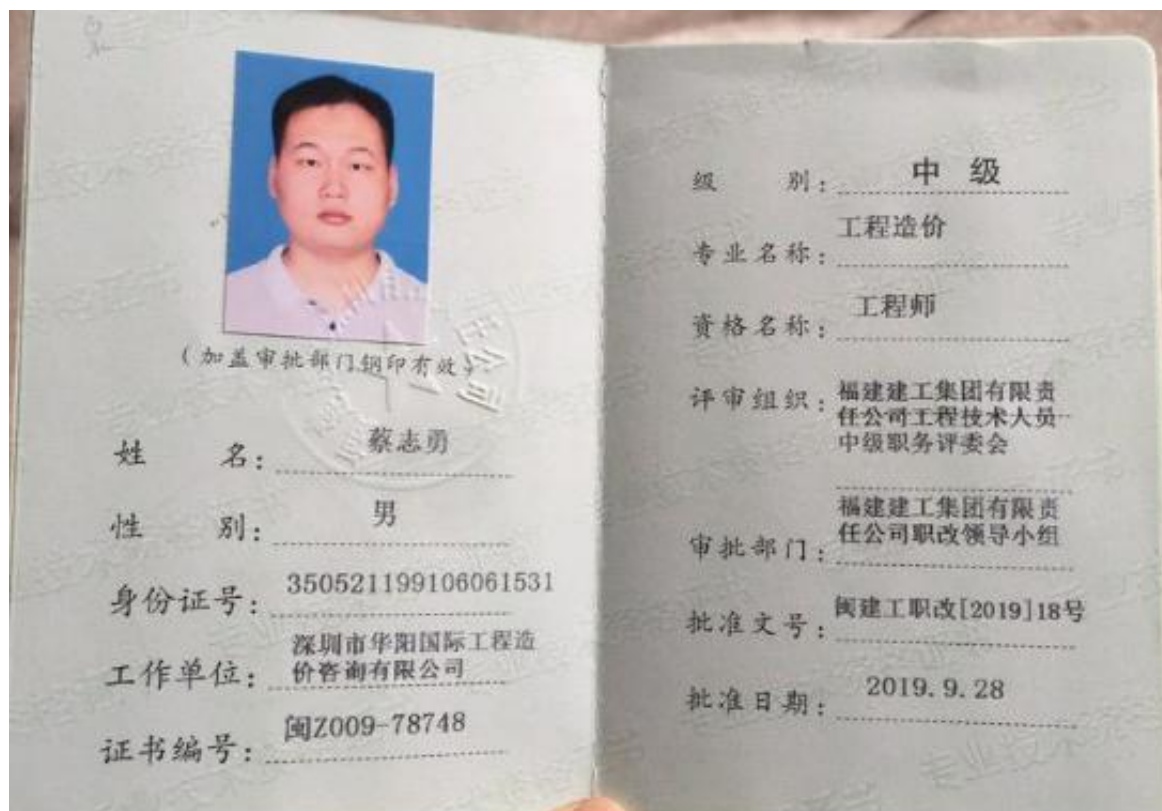 （加盖审批部门钢印有效）
姓 名：蔡志勇
性 别：男
身份证号：350521199106061531
工作单位：深圳市华阳国际工程造
价咨询有限公司
证书编号：闽Z009-78748
级 别：中 级
专业名称：工程造价
资格名称：工程师
评审组织：福建建工集团有限责
任公司工程技术人员
中级职务评委会
审批部门：福建建工集团有限责
任公司职改领导小组
批准文号：闽建工职改[2019]18号
批准日期：2019.9.28